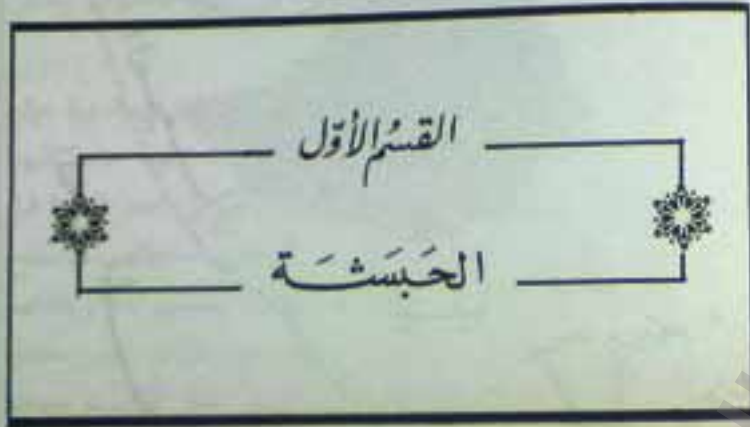 القسمُ الأوّل
الحَبَشَة